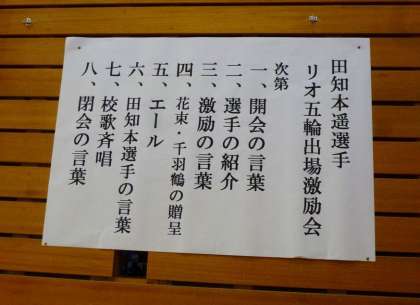 田知本遥選手
リオ五輪出場激励会
次第
一、開会の言葉
二、選手の紹介
三、激励の言葉
四、花束・千羽鶴の贈呈
五、エール
六、田知本選手の言葉
七、校歌斉唱
八、閉会の言葉